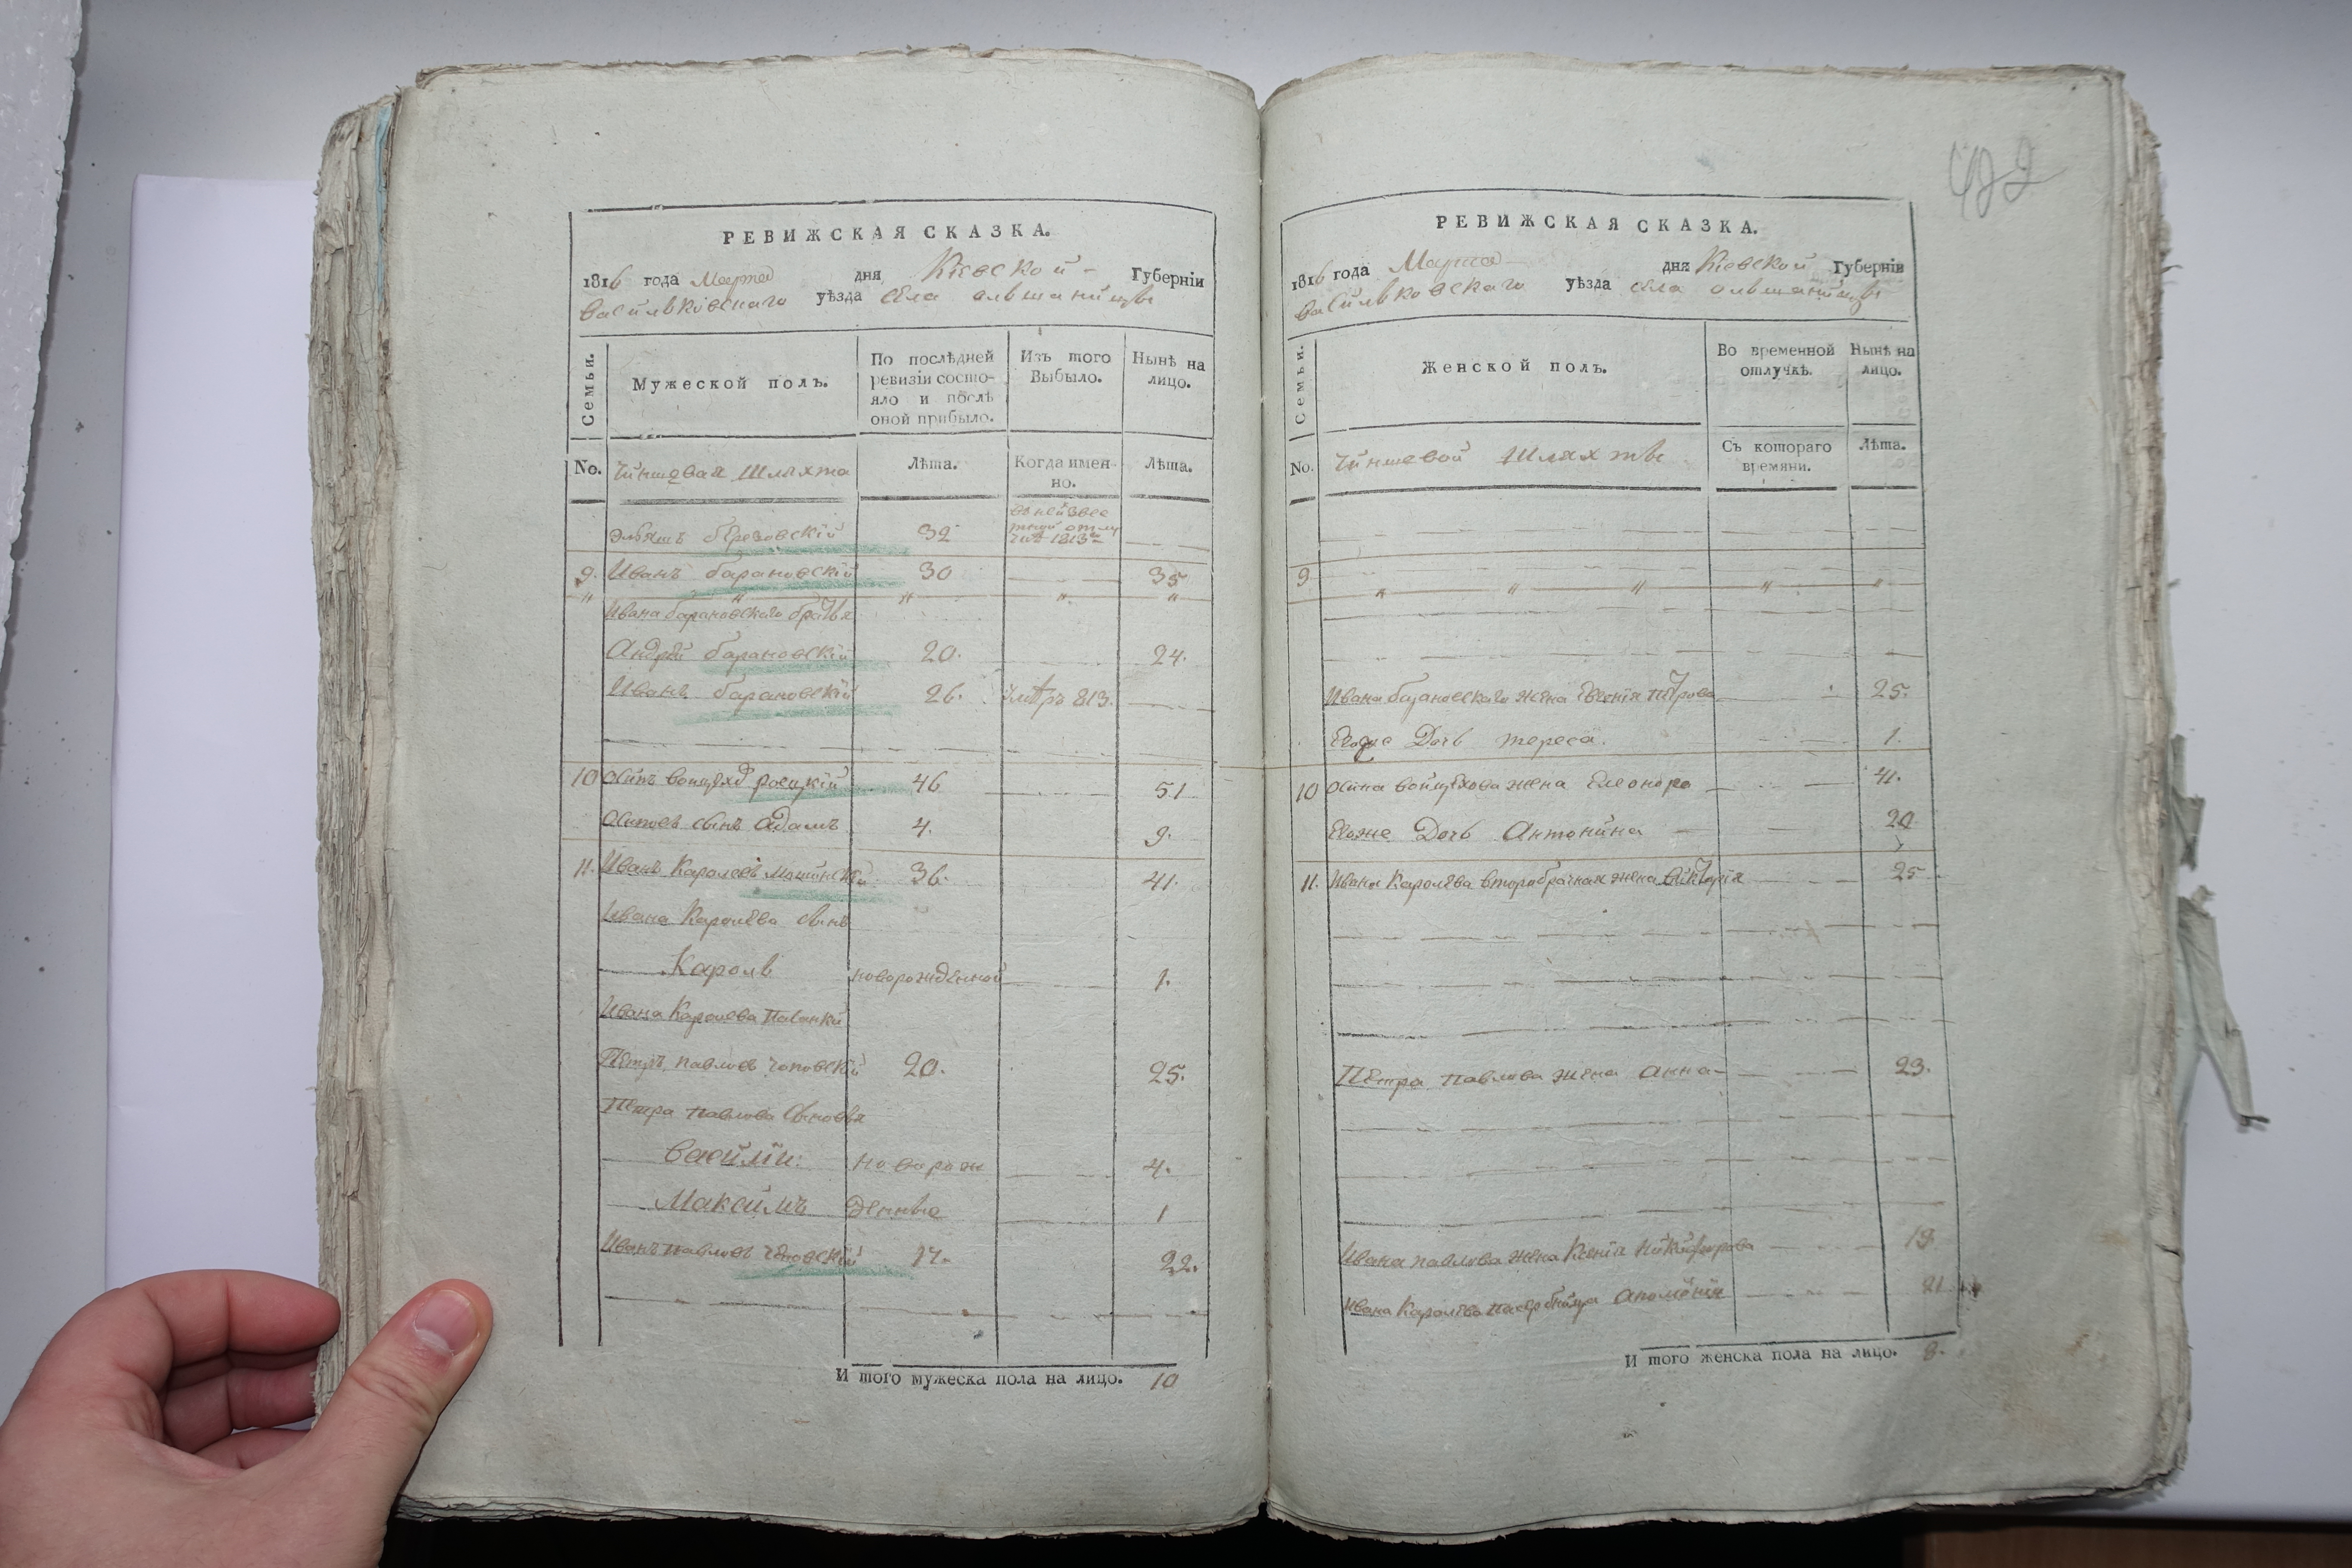 422
РЕВИЖСКАЯ СКАЗКА.
1816 года Марта дня Кіевской Губерніи
Васильковскаго уѣзда села Ольшаницы
Семьи.
Мужеской полъ.
По послѣдней ревизіи состо-
яло и послѣ
оной прибыло.
Изъ того
Выбыло.
Нынѣ на
лицо.
No.
Чиншевая Шляхта
Лѣта.
Когда имен-
но.
Лѣта.
Березовскій 32 1813
9. Иванъ Барановскій 30 35
Ивана Барановскаго братья
Андрей Барановскій 20. 24.
Иванъ Барановскій 26. 813.
10 Осипъ 46 51
Осиповъ сынъ Адамъ 4. 9.
11. Иванъ Каролевъ 36. 41.
Ивана Каролева сынъ
Кароль новорожденной 1.
Ивана Каролева
Петръ Павловъ 20. 25.
Петра Павлова сыновья
Василій: новорож 4.
Максимъ денные 1
Иванъ Павловъ 17. 22.
И того мужеска пола на лицо. 10
РЕВИЖСКАЯ СКАЗКА.
1816 года Марта дня Кіевской Губерніи
Васильковскаго уѣзда села Ольшаницы
Семьи.
Женской полъ.
Во временной
отлучкѣ.
Нынѣ на
лицо.
No.
Чиншевой Шляхты
Съ котораго
времяни.
Лѣта.
9
Ивана Барановскаго жена Петрова 25.
Дочь Тереса. 1.
10 Осипа Войцехова жена Елеонора 41.
Дочь Антонина 20
11. Ивана Каролева второбрачная жена Викторія 25
Петра Павлова жена Анна 23.
Ивана Павлова жена Ксенія Никифорова 19
Ивана Каролева Аполонія 21
И того женска пола на лицо. 8.